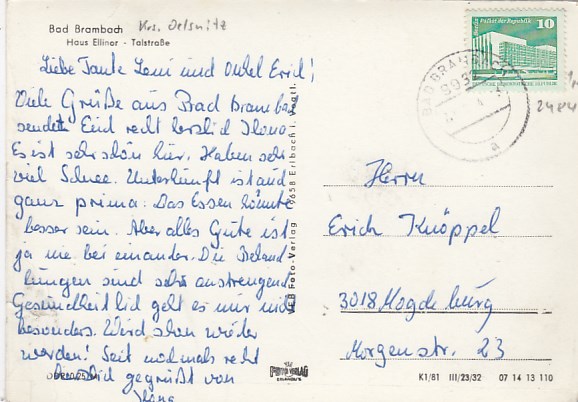 Bad Brambach Krs. Oelsnitz
Haus Ellinor - Talstraße
Liebe Tante Leni und Onkel Erich!
Viele Grüße aus Bad Brambach
sendet Euch recht herzlich Ilona
Es ist sehr schön hier. Haben sehr
viel Schnee. Unterkunft ist auch
ganz prima. Das Essen könnte
besser sein. Aber alles Gute ist
ja nie bei einander. Die Behand
lungen sind sehr anstrengend
Gesundheitlich geht es mir nicht
besonders. Wird schon wieder
werden! Seit nochmals recht
herzlich gegrüßt von
Ilona
VEB Foto-Verlag 9658 Erlbach i. Vogtl.
Palast der Republik 10
BAD BRAMBACH
a
2484
Herrn
Erich Knöppel
3018 Magdeburg
Morgenstr. 23
FOTO VERLAG
ERLBACH
K1/81 III/23/32 07 14 13 110